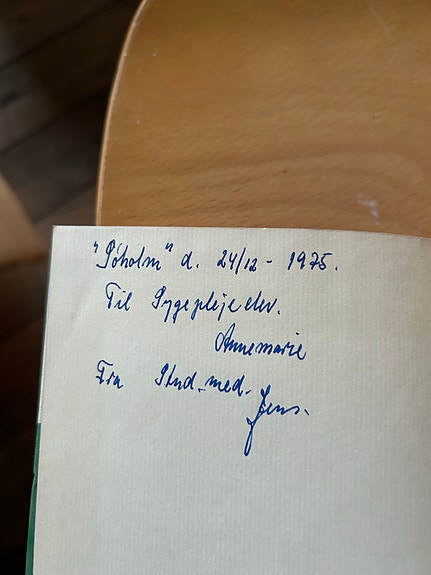 "Søholm" d. 24/12 - 1975.
Til Sygeplejeelev.
Annemarie
Fra Stud. med.
Jens.